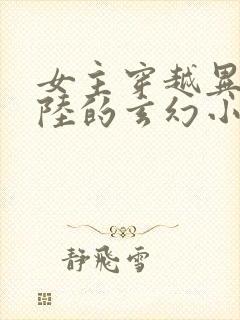 女主穿越異
陸的玄幻小
靜飛雪